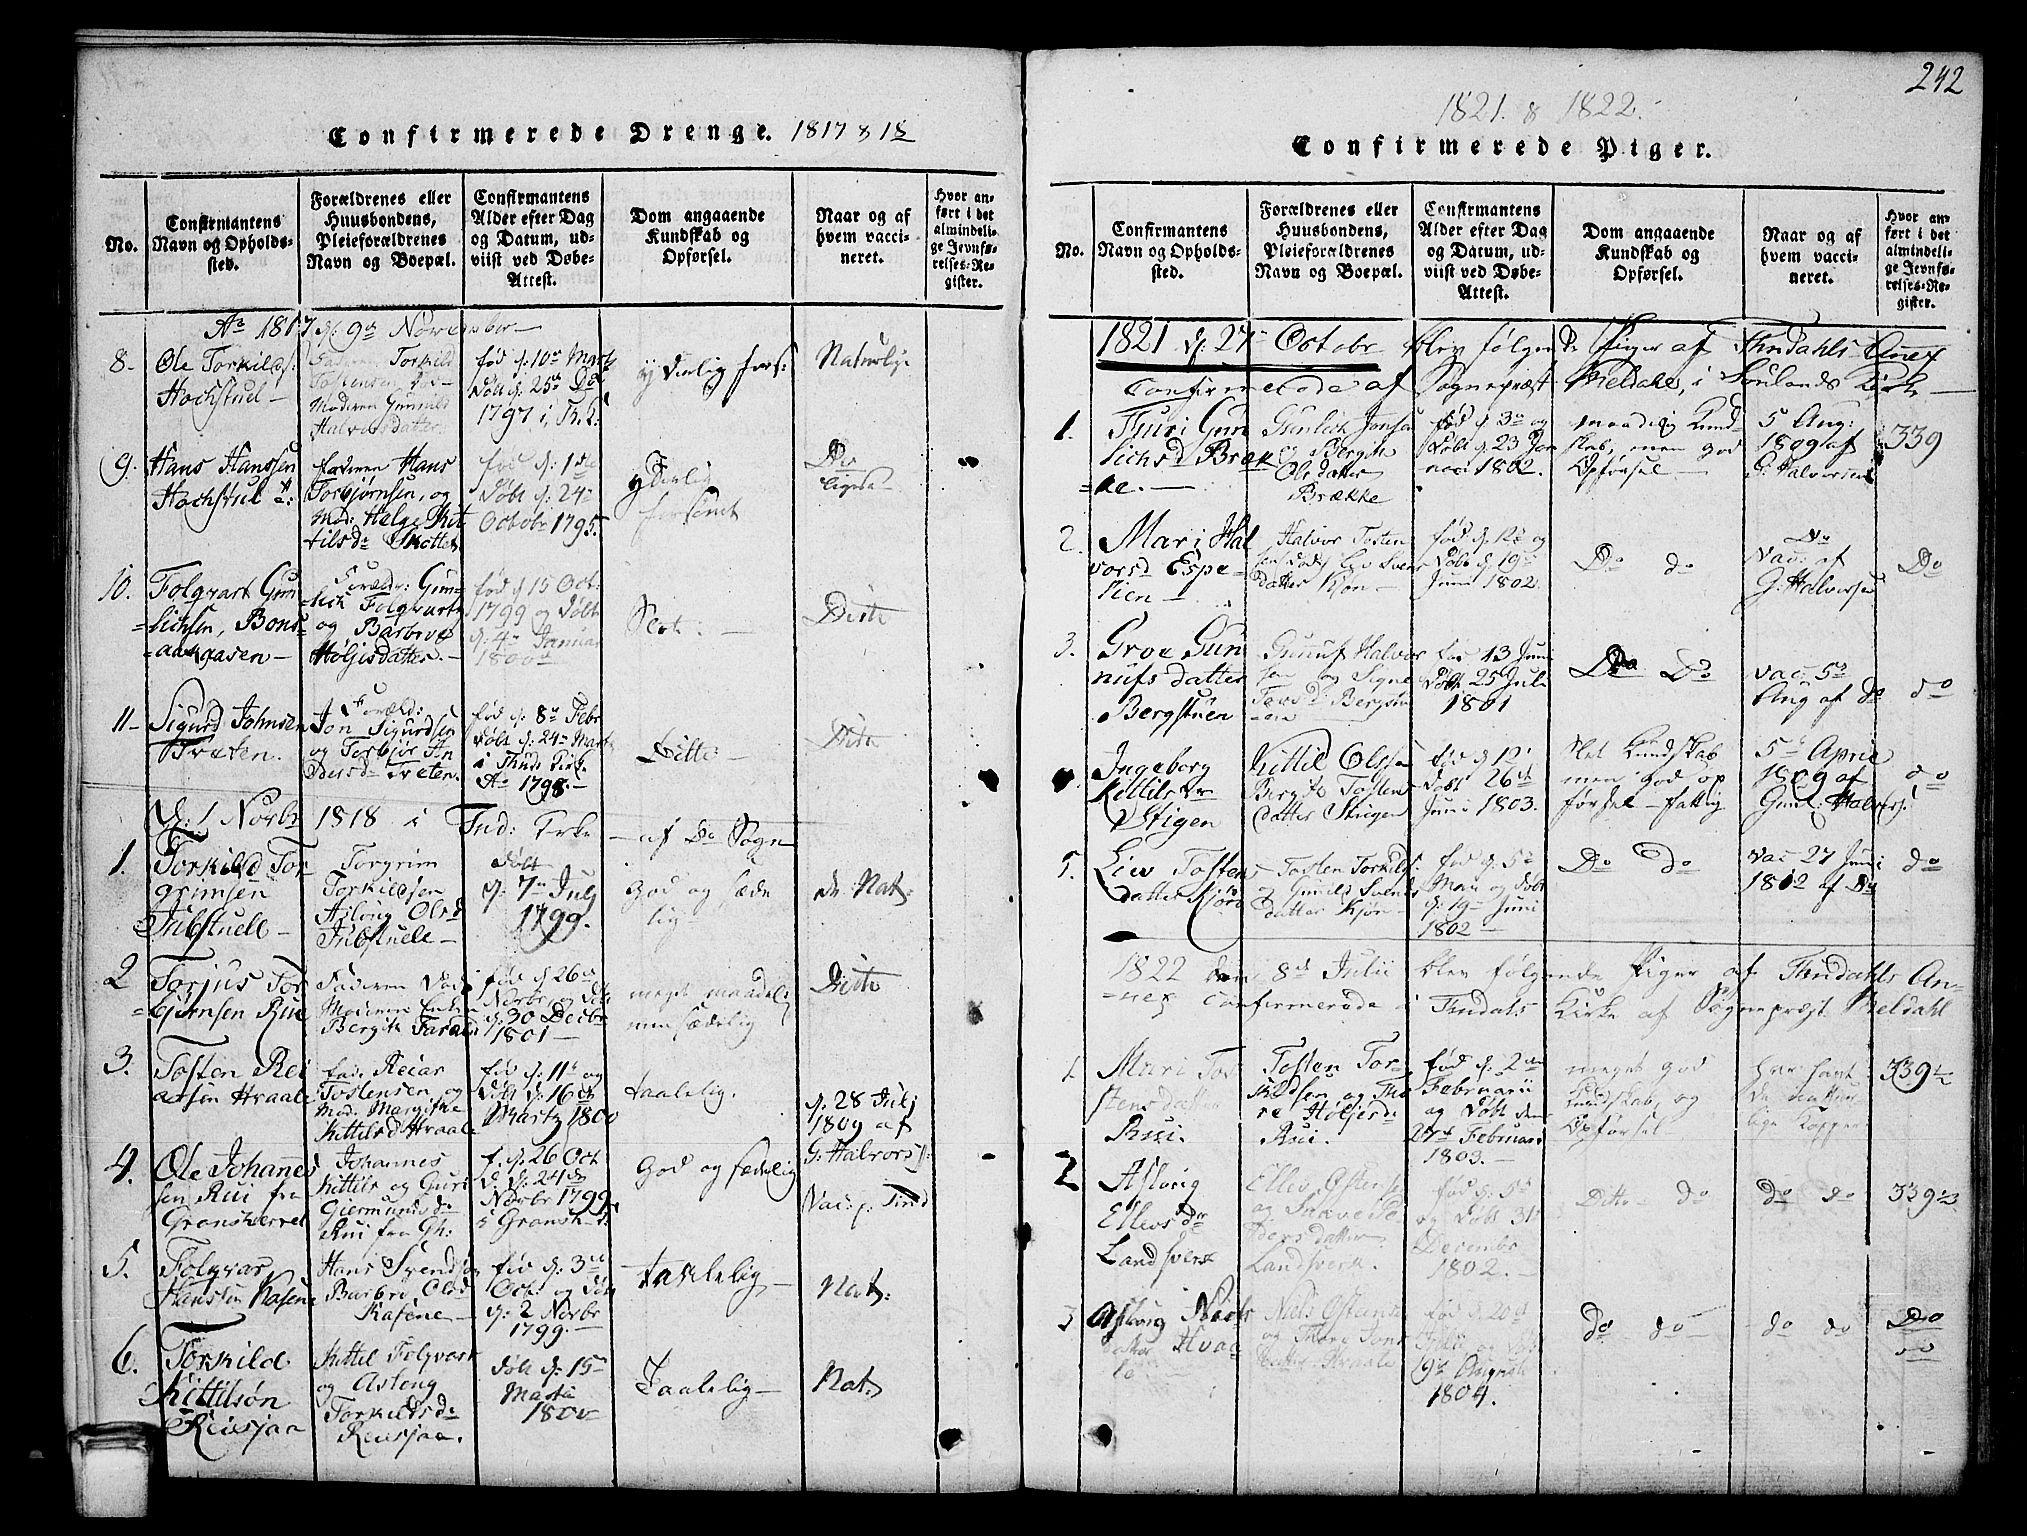 242
Confirmerede Drenge. 1817 & 18
No.
Confirmantens
Navn og Opholds-
sted.
Forældrenes eller
Huusbondens,
Pleieforældrenes
Navn og Boepæl.
Confirmantens
Alder efter Dag
og Datum, ud-
viist ved Døbe-
Attest.
Dom angaaende
Kundskab og
Opførsel.
Naar og af
hvem vacci-
neret.
Hvor an-
ført i det
almindeli-
ge Jevnfø-
relses-Re-
gister.
Ao 1817 d. 9de November
8-
Ole Torkilds:
Hochstuel -
Faderen Torkild
Tostensen
Moderen Gunnild
Halvorsdatter.
fød d: 10de Martz
døbt d. 25de Do
1797 i
ynderlig fors:
Naturlije
9.
Hans Hanssen
Hochstul
faderen Hans
Torbjørnsen, og
Mod: Helge Kit
tilsdr Skotten
fød d: 1ste
døbt d: 24de
Octobr 1795.
ynderlig
forsømt
Do
ligesaa
10.
Folqvart Gun
=lichsen, Bons
=aasen -
Forældr: Gun-
=lich Folqvarts
og Barbroe
Høljesdatter. -
fød d 15 Oct:
1799 og døbt
d. 4de Januar
1800
Slet. -
Ditto
11-
Sigurd Johnsen
Træten.
Foræld:
Jon Sigurdsen
og Torbjør An
dersdr Træten.
fød d: 8de Febr
døbt d: 24de Martz
i Thuds Kirk.
Ao 1798. -
Ditto -
Dito
d: 1 Novbr 1818 i Tind: Kirke - af Do Sogn
1.
Torkild Tor
grimsen
Juvstuell -
Torgrim
Torkildsen
Asloug Olsd
Juvstuele -
døbt
d: 7de Julj
1799.
God og sæde
lig -
do Nat:
2
Torjus Tor
=bjørnsen Rui
Faderen
Moderen
Bergit
fød d 26de
Novbr og døbt
d. 30 Decbr
1801 -
meget maadelig
men sædelig
Ditto
3.
Tosten Rei
arsen Hraale
fad. Reiar
Tostensen og
Mod. Margithe
Kittilsd Hraale
fød d: 11te og
døbt d. 16de
Martz 1800
taalelig.
d: 28 Julj
1809 af
G: Halvors:
4.
Ole Johannes
sen Rui fra
Gransherret
Johannes
Kittils og Guri
Giermundsdr
Rui fra Gh:
f. d: 26 Oct
d: 24de
Novbr 1799.
i Gransh
God og sædelig
Vac: p: Tind
5.
Folqvar
Hanssen Kasene
Hans Svends
Barbro Olsd
Kasene -
fød d: 3de
Oct: og døbt
d: 2 Novbr
1799. -
-taalelig -
Nat:
6.
Torkild
Kittilsøn
Reiesjaa
Kittel Folqvart
og Asloug
Torkildsdr
Reiesjaa.
døbt d. 15de
Martii
1800
Taalelig -
Nat:
1821. & 1822.
Confirmerede Piger.
No.
Confirmantens
Navn og Opholds-
sted.
Forældrenes eller
Huusbondens,
Pleieforældrenes
Navn og Boepæl.
Confirmantens
Alder efter Dag
og Datum, ud-
viist ved Døbe-
Attest.
Dom angaaende
Kundskab og
Opførsel.
Naar og af
hvem vacci-
neret.
Hvor an-
ført i det
almindeli-
ge Jevnfø-
relses-Re-
gister.
1821 d. 27de Octobr blev følgende Piger af Tindahls Anex
Confirmerede af Sognepræst Meldahl, i Soulands Kirke -
1.
Thuri Gun
lichsd Bræk
=ke. -
Gunlich Jonsen
og Bergith
Olsdatter
Brække
fød d 3de og
døbt d. 23 Ja
nuari 1802.
maadelig Kund-
skab, men god
Opførsel -
5 Aug:
1809 af
G: Halvorsen
339
2.
Mari Hal
vorsd Espe-
lien -
Halvor Tosten
sen Liv Svens
datter Kjøn -
fød d. 12te og
døbt d. 19de
Juni 1802.
Do do
Do
Vac: af
G: Halvorsen
Do
3.
Groe Gun
nufsdatter
Bergstuen
Gunnuf Halvor
sen og Signe
Bergstu
=en
fød 13 Juni
døbt 25 Juli
1801
Do Do
vac. 5te
Aug af do
do
Ingeborg
Kittilsdr
Stigen
Kittil Olssen
Bergit Tostens
datter Stigen
fød d 12
døbt 26de
Juni 1803.
slet Kundskab
men god op
førsel - fattig
5te April
1809 af
Gunl Halvors:
do
5.
Liv Tostens
datter Kjøn
Tosten Torkilds:
og Gunild Svends
datter Kjøn -
fød d. 5te
Maii og døbt
d. 19de Juni
1802 -
Do do
vac 27 Juni
1802 af Do
do
1822 den 8de Julii blev følgende Piger af Tindahls An-
=nex Confirmerede i Tindals Kirke af Sognepræst Meldahl
1.
Mari Tos
stensdatter
Rui.
Tosten Tor-
kildsen og Tho
re Høljesdr
Rui.
fød d. 2den
Februarii
og døbt den
27de Februari
1803. -
meget god
Kundskab, og
Opførsel -
har havt
de natur
lige Kopper
339
2
Aslovig
Ellevsdr
Landsverk
Ellev Østense
og
dersdatter
Landsverk. -
fød d. 5te
og døbt 31te
Decembr
1802. -
Ditto - do
do do
339
3
Aslovig Niels
datter Hvaa
le
Niels Østense
og Thore Jons
datter Hraale
fød d. 20de
Julii og døbt
19de August
1804.
do do
do do
Do
do